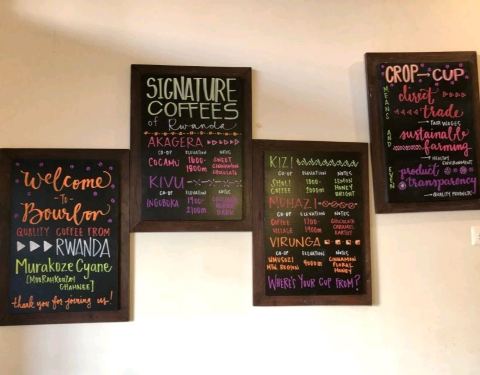 Welcome
to
Bourbon
QUALITY COFFEE FROM
RWANDA
Murakoze Cyane
thank you for joining us!
SIGNATURE
COFFEES
of Rwanda
AKAGERA
CO-OP ELEVATION NOTES
COCAMU 1600-1800m SWEET CINNAMON CHOCOLATE
KIVU
CO-OP ELEVATION NOTES
INGOBUKA 1900-2100m
KIZI
CO-OP ELEVATION NOTES
SHOLI COFFEE 1800-2000m LEMONY HONEY BRIGHT
MUHAZI
CO-OP ELEVATION NOTES
COFFEE VILLAGE 1700-1900m CHOCOLATE CARAMEL EARTHY
VIRUNGA
CO-OP ELEVATION NOTES
MTN. REGION 2000m CINNAMON FLORAL HONEY
WHERE'S YOUR CUP FROM?
CROP → CUP
MEANS AND EVEN
direct
trade
→ FAIR WAGES
sustainable
farming
→ HEALTHY ENVIRONMENT
product
transparency
→ QUALITY PRODUCTS